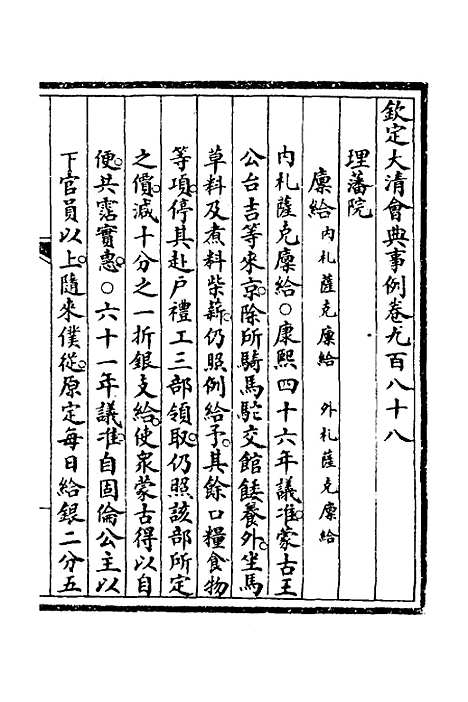 欽定大清會典事例卷九百八十八
理藩院
廩給內札薩克廩給 外札薩克廩給
內札薩克廩給○康熙四十六年議准蒙古王
公台吉等來京除所騎馬駝交館餧養外坐馬
草料及煮料柴薪仍照例給予其餘口糧食物
等項停其赴戶禮工三部領取仍照該部所定
之價減十分之一折銀支給使衆蒙古得以自
便共霑實惠○六十一年議准自固倫公主以
下官員以上隨來僕從原定每日給銀二分五